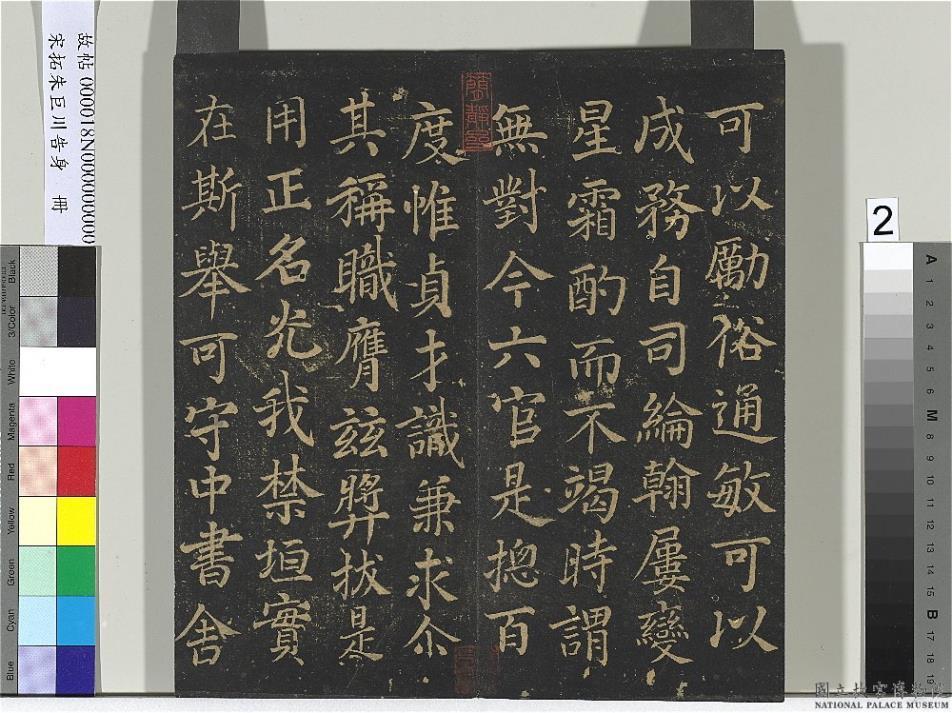 可以勵俗通敏可以
成務自司綸翰屢變
星霜酌而不竭時謂
無對今六官是揔百
度惟貞才識兼求尒
其稱職膺茲獎拔是
用正名光我禁垣實
在斯舉可守中書舍
故帖 000018N000000000
宋拓朱巨川告身 冊
2
Black
3/Color
White
Magenta
Red
Yellow
Green
Cyan
Blue
A
1
2
3
4
5
6
M
8
9
10
11
12
13
14
15
B
17
18
19
國立故宮博物院
NATIONAL PALACE MUSEUM